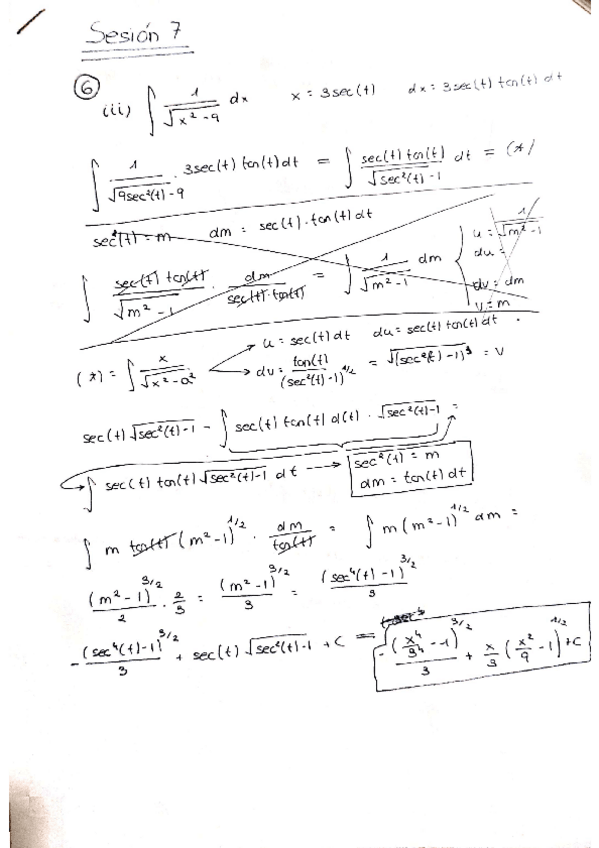 Sesión 7
⑥
iii) ∫ 1/√(x² - 9) dx    x = 3sec(t)    dx = 3sec(t) tan(t) dt
∫ 1/√(9sec²(t) - 9) · 3sec(t) tan(t) dt = ∫ sec(t) tan(t)/√(sec²(t) - 1) dt = (*)
sec²(t) = m    dm = sec(t) · tan(t) dt
∫ sec(t) tan(t)/√(m² - 1) · dm/(sec(t)·tan(t)) = ∫ 1/√(m² - 1) dm { u = 1/√(m² - 1)
du =
dv = dm
v = m
(*) = ∫ x/√(x² - a²) → u = sec(t) dt    du = sec(t) tan(t) dt
→ dv = tan(t)/(sec²(t) - 1)^(1/2) = √(sec²(t) - 1) = v
sec(t) √(sec²(t) - 1) - ∫ sec(t) tan(t) d(t) · √(sec²(t) - 1) =
→ ∫ sec(t) tan(t) √(sec²(t) - 1) dt → sec²(t) = m
dm = tan(t) dt
∫ m tan(t) (m² - 1)^(1/2) · dm/tan(t) = ∫ m (m² - 1)^(1/2) dm =
(m² - 1)^(3/2)/2 · 2/3 = (m² - 1)^(3/2)/3 = (sec⁴(t) - 1)^(3/2)/3
-(sec⁴(t) - 1)^(3/2)/3 + sec(t) √(sec²(t) - 1) + C = -(x⁴/3⁴ - 1)^(3/2)/3 + x/3 (x²/9 - 1)^(1/2) + C